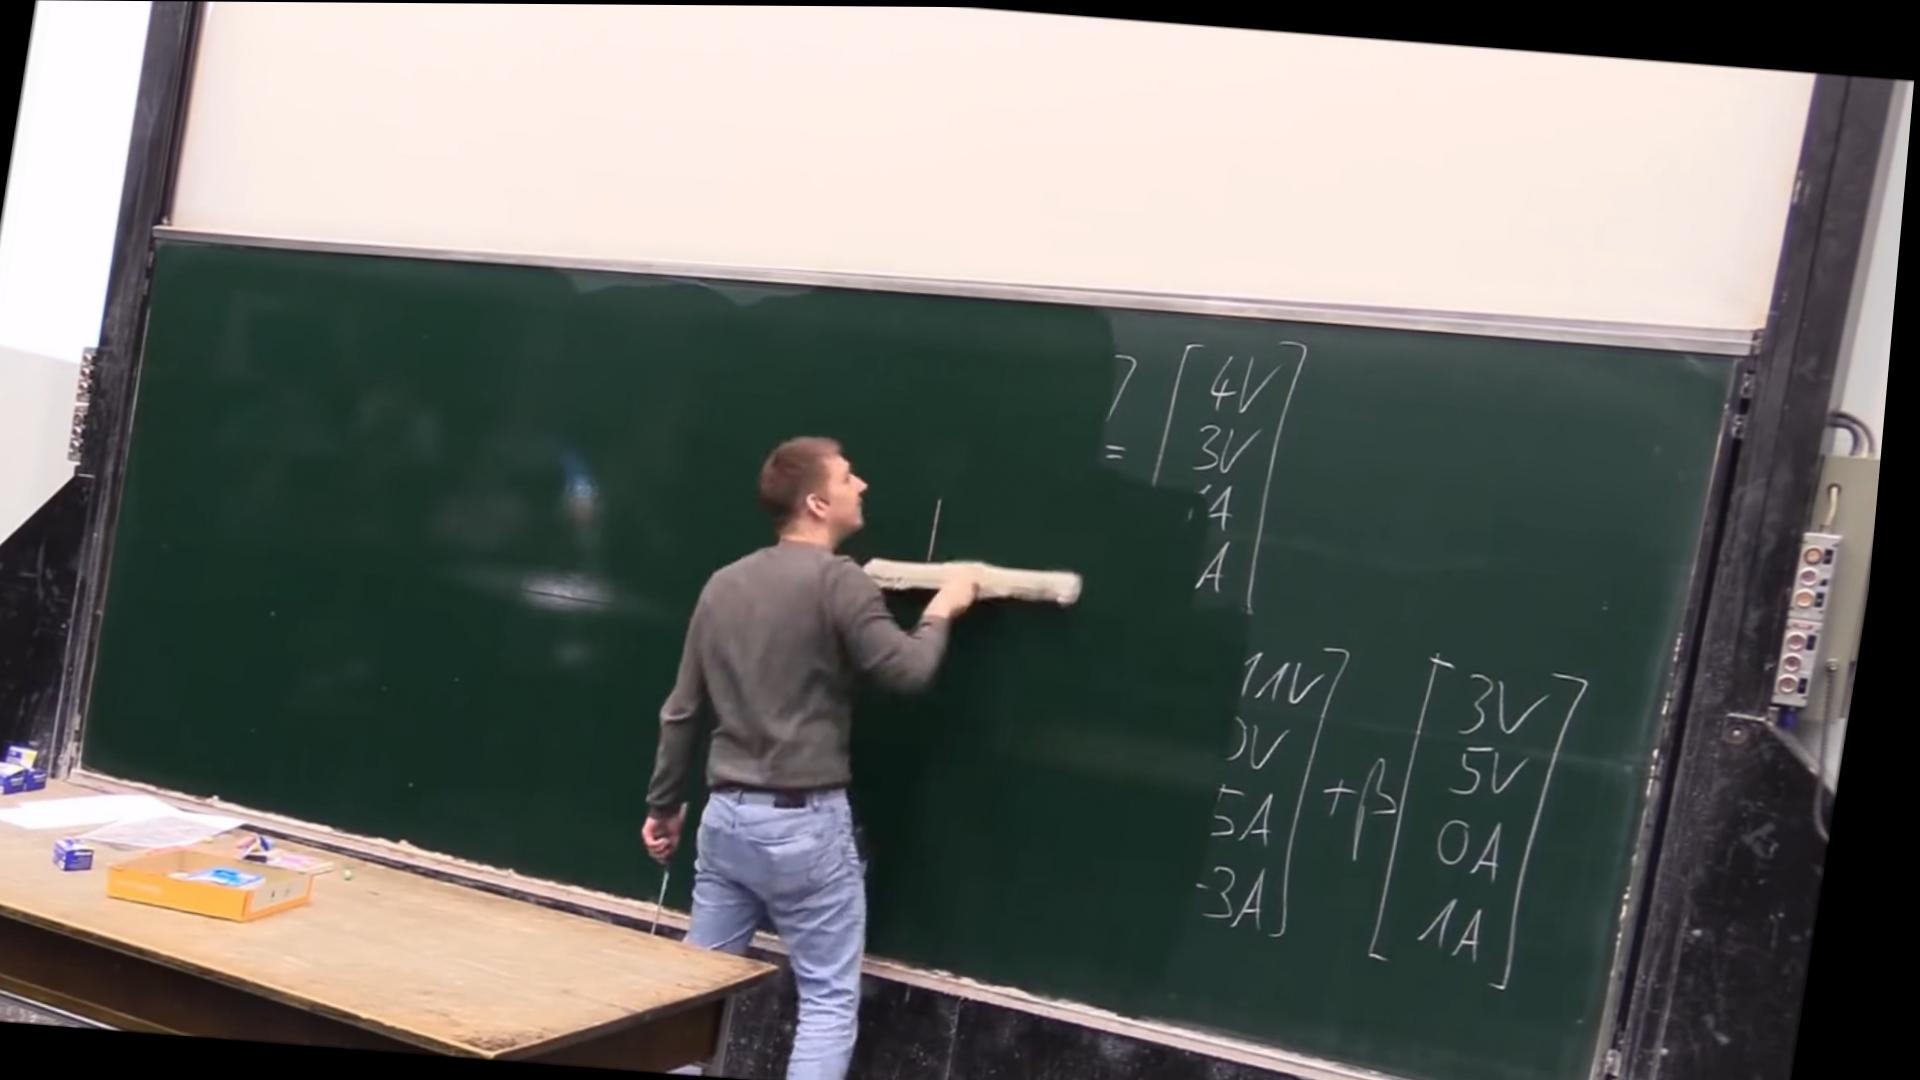 = 4V
3V
A
A
11V
0V
5A
-3A
+β
3V
5V
0A
1A